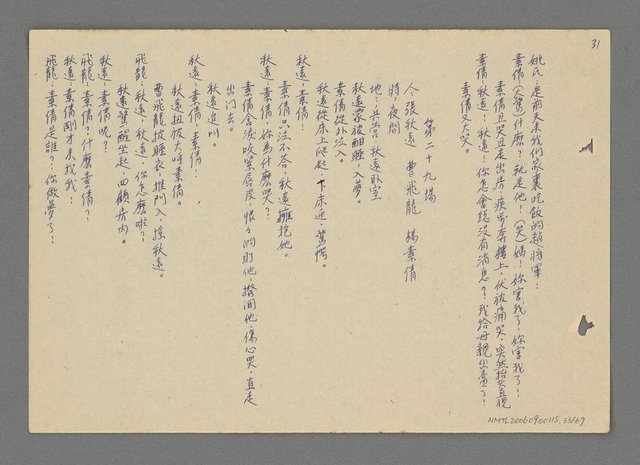 31
姚氏：是前天来我们家裏吃飯的趙将軍：
素倩：(大驚)什麽？就是他！(哭)媽！妳害我了！妳害我了！
素倩且哭且走出房，疾步奔樓上，伏被痛哭，突然抬頭直視
素倩：秋遠！秋遠！你怎會総沒有消息？我给母親出賣了！
素倩又大哭。
第二十九場
人：張秋遠 曹飛龍 楊素倩
時：夜間
地：兵营，秋遠卧室
秋遠蒙被酣睡，入夢。
素倩從外泣入。
秋遠從床上爬起，下床迎，驚愕。
秋遠：素倩！
素倩只泣不答，秋遠擁抱她。
秋遠：素倩，妳爲什麽哭？
素倩含淚咬緊唇皮，恨々的盯他，撥開他，傷心哭，直走
出门去。
秋遠追叫。
秋遠：素倩，素倩！
秋遠扭被大呼素倩。
曹飛龍披睡衣，推门入，搖秋遠。
飛龍：秋遠，秋遠，你怎麽啦？
秋遠驚醒坐起，四顧房内。
秋遠：素倩呢？
飛龍：素倩？什麽素倩？
秋遠：素倩刚才来找我！
飛龍：素倩是誰？你做夢了！
NMTL20060900115, 33/67